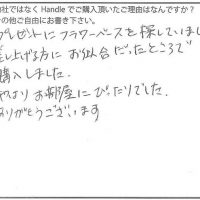 社ではなく Handle でご購入頂いたご理由はなんですか？
の他ご自由にお書き下さい。
プレゼントにフラワーベースを探していまし
差し上げる方に お似合だったところで
購入しました。
やはり お部屋に ぴったりでした。
ありがとうございます